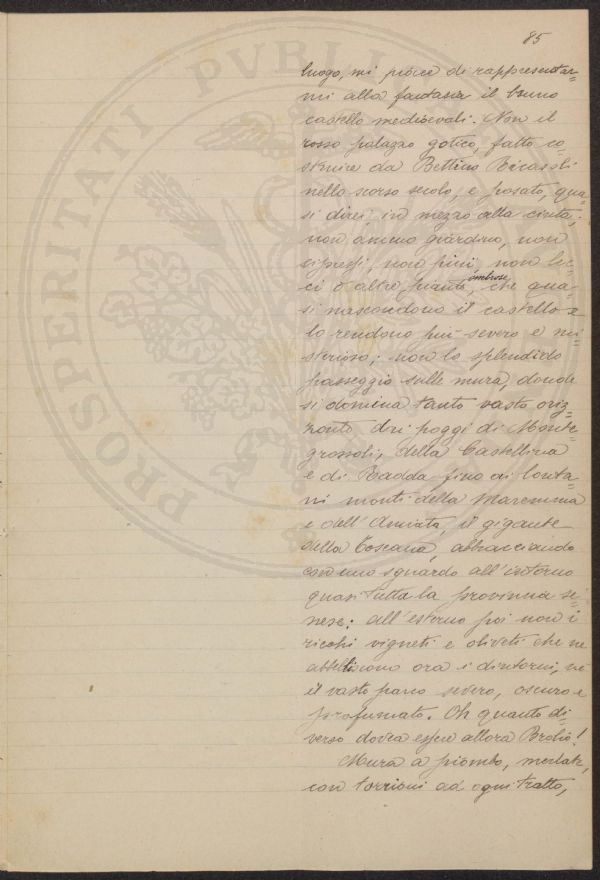 85
luogo, mi piace di rappresentar=
mi alla fantasia il bruno
castello medioevali. Non il
rosso palazzo gotico, fatto co
struire da Bettino Ricasoli
nello scorso secolo, e posato, qua=
si direi in mezzo alla cinta;
non ameno giardino, non
cipressi, non pini, non lec=
ci o altre piante, ombrose che qua=
si nascondono il castello e
lo rendono più severo e mi=
sterioso; non lo splendido
passeggio sulle mura, donde
si domina tanto vasto oriz=
zonte dai poggi di Monte=
grossoli, della Castellina
e di Radda fino ai lonta=
ni monti della Maremma
e dell'Amiata, il gigante
della Toscana, abbracciando
con uno sguardo all'intorno
quasi tutta la provincia se=
nese: all'esterno poi non i
ricchi vigneti e oliveti che ne
abbelliscono ora i dintorni, nè
il vasto parco severo, oscuro e
profumato. Oh quanto di=
verso dovea essere allora Brolio!
Mura a piombo, merlate,
con torrioni ad ogni tratto,
PROSPERITATI PVBLI